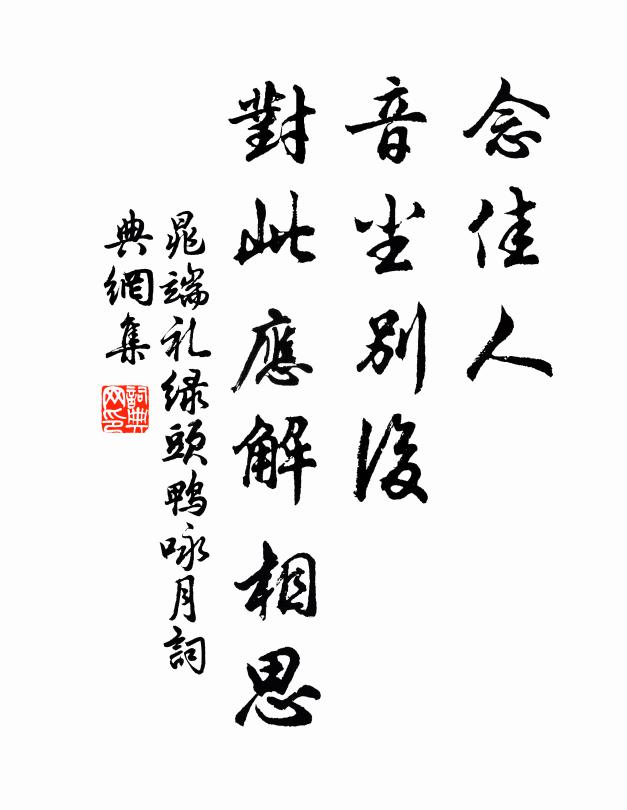 念佳人
音尘别後
對此應解相思
晁端礼绿頭鴨咏月詞
典網集
詞典網印